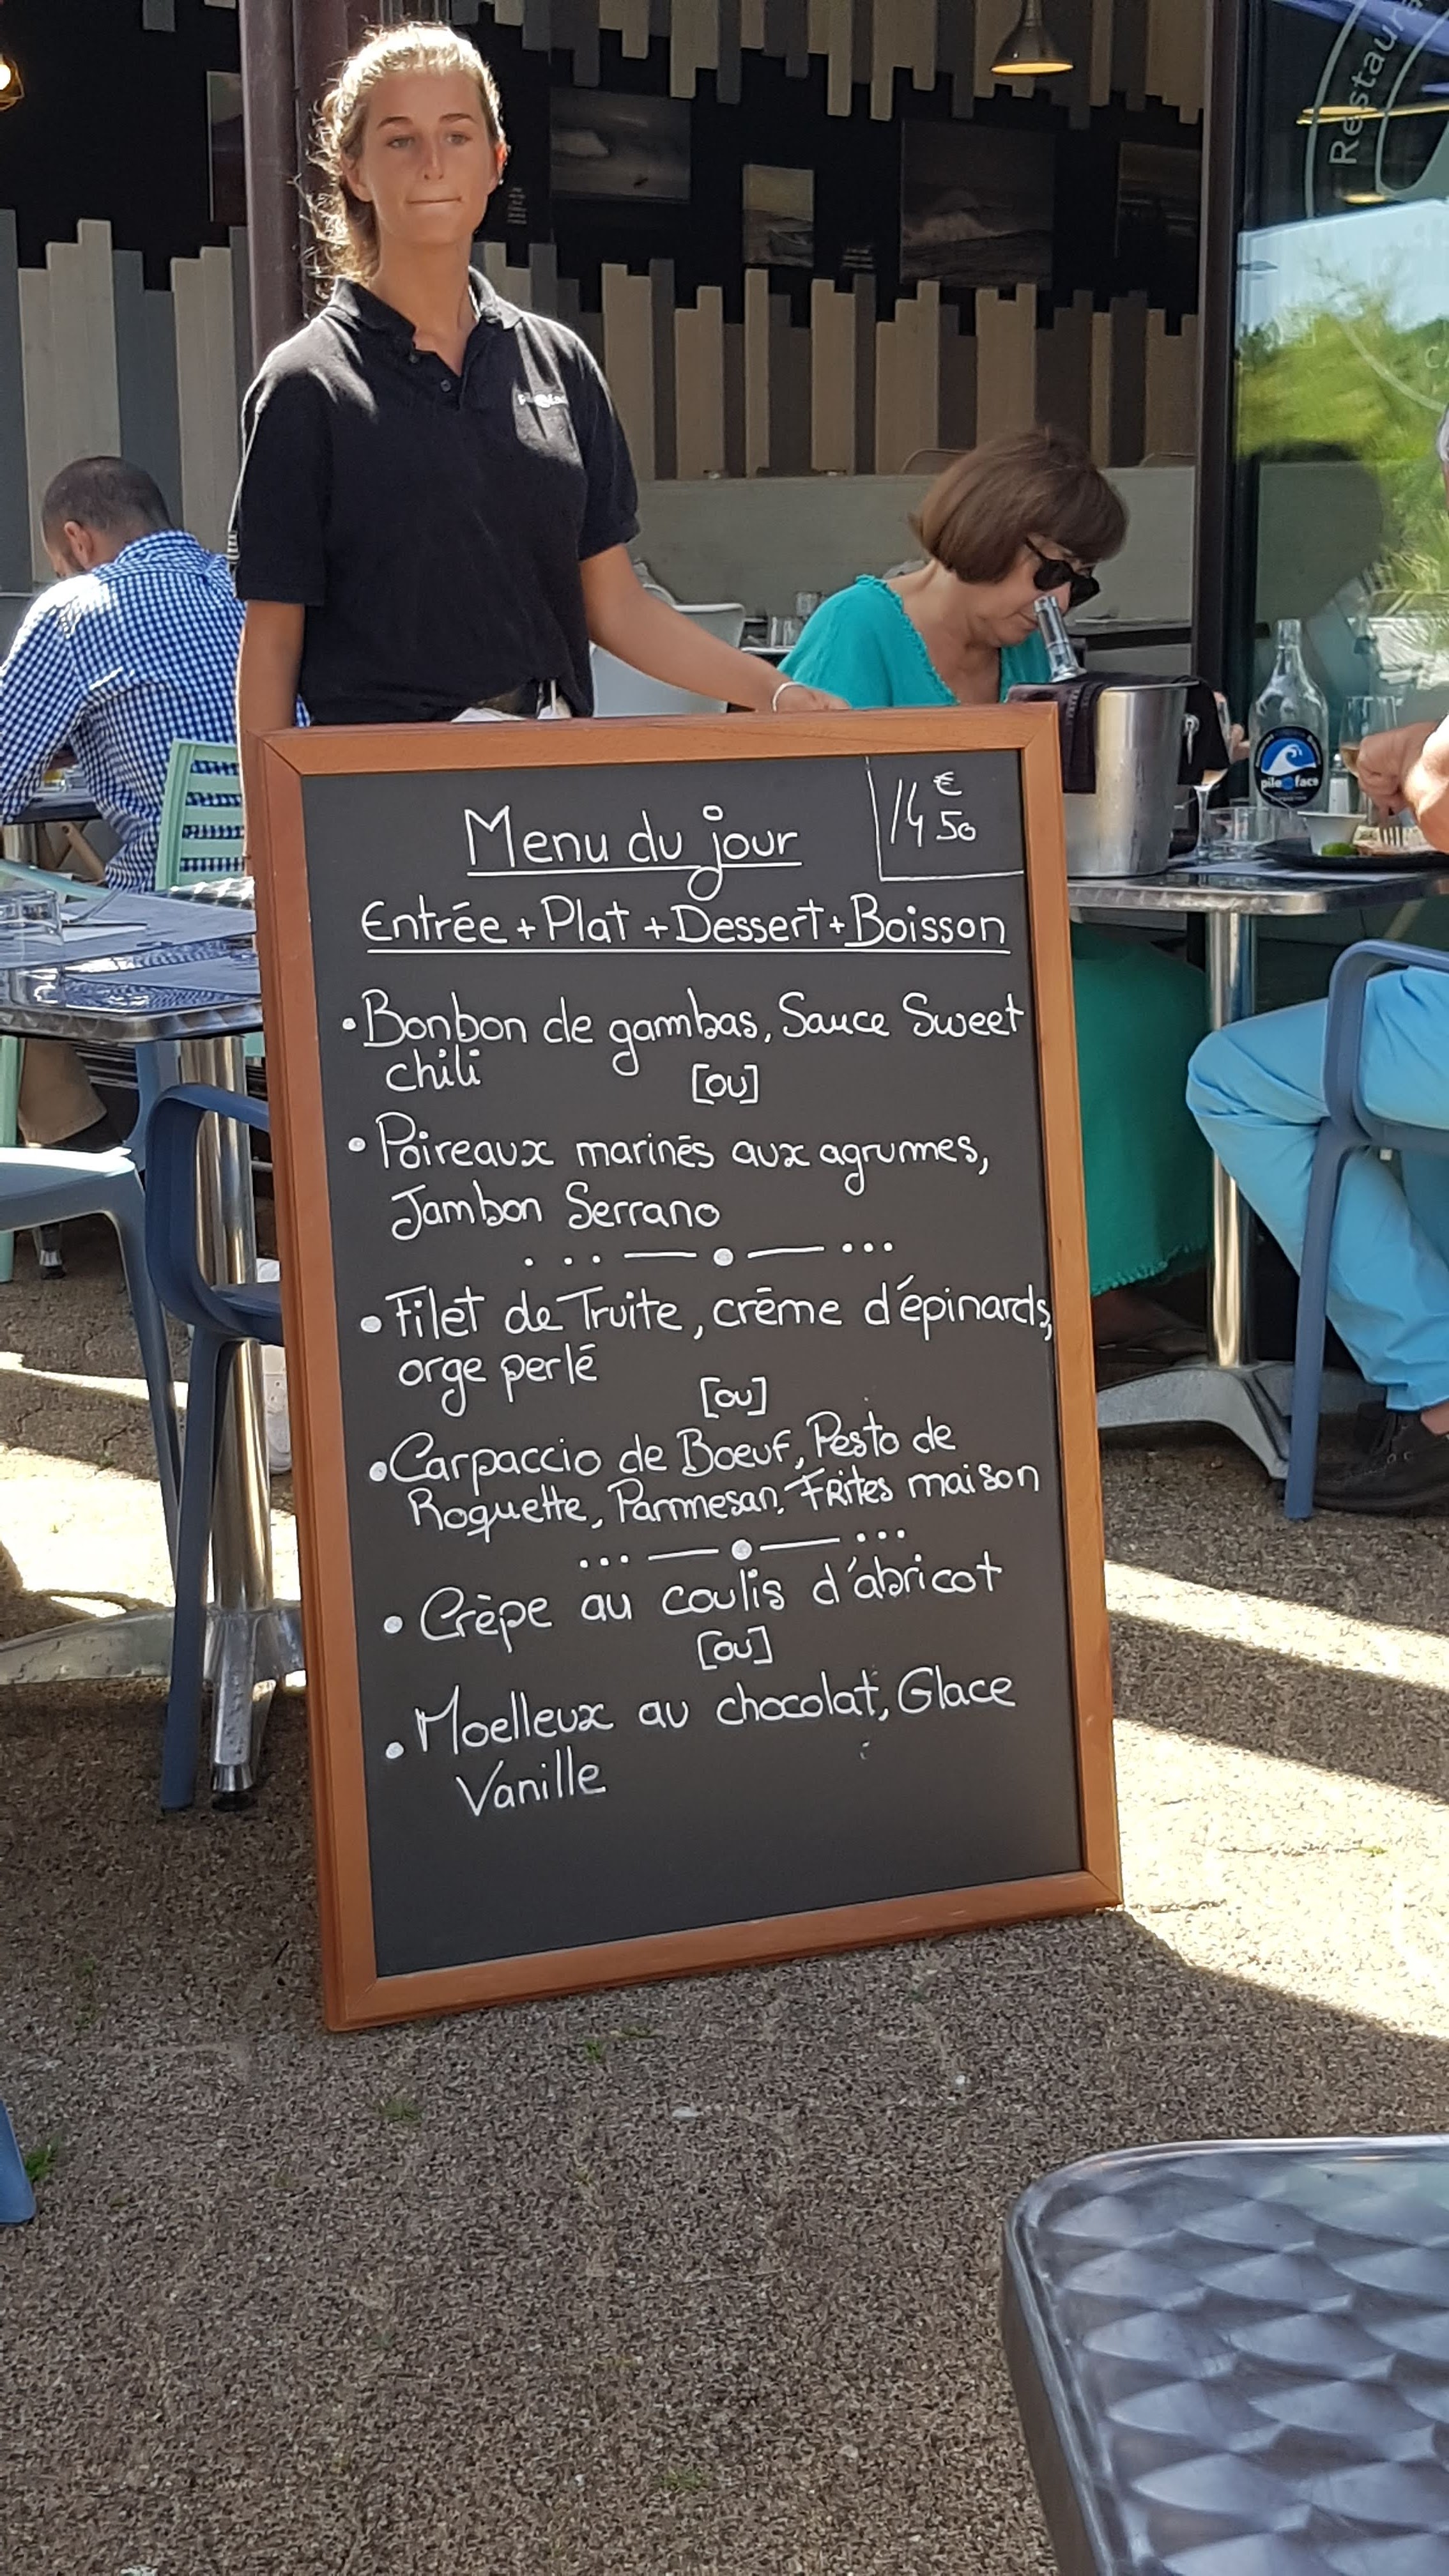 Restaura
Menu du jour
14€50
Entrée + Plat + Dessert + Boisson
• Bonbon de gambas, Sauce Sweet
chili
[ou]
• Poireaux marinés aux agrumes,
Jambon Serrano
... — • — ...
• Filet de Truite, crème d'épinards,
orge perlé
[ou]
• Carpaccio de Boeuf, Pesto de
Roquette, Parmesan, FRites maison
... — • — ...
• Crèpe au coulis d'abricot
[ou]
• Moelleux au chocolat, Glace
Vanille
pile face